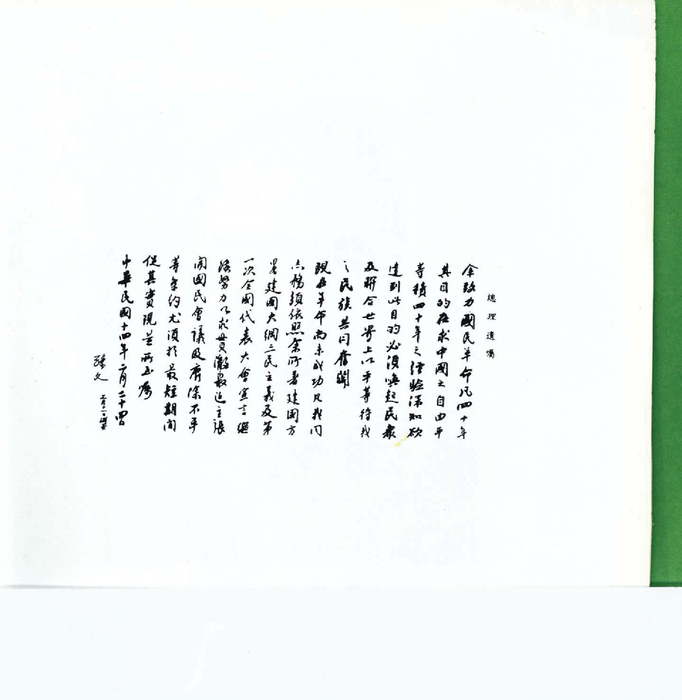 總理遺囑
余致力國民革命凡四十年
其目的在求中國之自由平
等積四十年之經驗深知欲
達到此目的必須喚起民衆
及聯合世界上以平等待我
之民族共同奮鬬
現在革命尚未成功凡我同
志務須依照余所著建國方
畧建國大綱三民主義及第
一次全國代表大會宣言繼
續努力以求貫澈最近主張
開國民會議及廢除不平
等條約尤須於最短期間
促其實現是所至囑
中華民國十四年二月二十四日
孫文